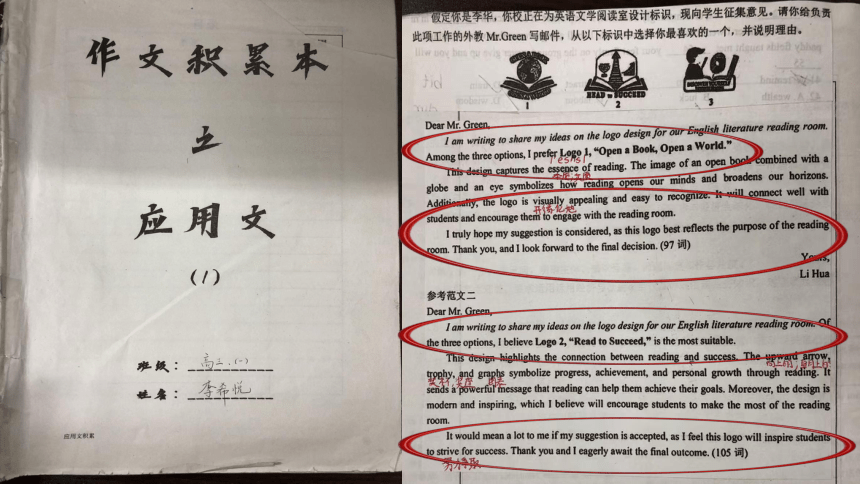 作文积累本
之
应用文
(1)
班级：高三.(一)
姓名：李希悦
应用文积累
假定你是李华，你校正在为英语文学阅读室设计标识，现向学生征集意见。请你给负责
此项工作的外教 Mr.Green 写邮件，从以下标识中选择你最喜欢的一个，并说明理由。
READ to SUCCEED
1
2
3
Dear Mr. Green,
I am writing to share my ideas on the logo design for our English literature reading room.
Among the three options, I prefer Logo 1, “Open a Book, Open a World.”
This design captures the essence of reading. The image of an open book combined with a
globe and an eye symbolizes how reading opens our minds and broadens our horizons.
Additionally, the logo is visually appealing and easy to recognize. It will connect well with
students and encourage them to engage with the reading room.
I truly hope my suggestion is considered, as this logo best reflects the purpose of the reading
room. Thank you, and I look forward to the final decision. (97 词)
Yours,
Li Hua
参考范文二
Dear Mr. Green,
I am writing to share my ideas on the logo design for our English literature reading room. Of
the three options, I believe Logo 2, “Read to Succeed,” is the most suitable.
This design highlights the connection between reading and success. The upward arrow,
trophy, and graphs symbolize progress, achievement, and personal growth through reading. It
sends a powerful message that reading can help them achieve their goals. Moreover, the design is
modern and inspiring, which I believe will encourage students to make the most of the reading
room.
It would mean a lot to me if my suggestion is accepted, as I feel this logo will inspire students
to strive for success. Thank you and I eagerly await the final outcome. (105 词)